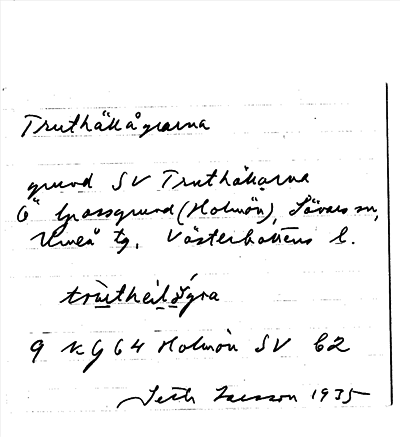 Truthällågrarna
grund SV Truthällarna
6" Grossgrund (Holmön), Sävars sn,
Umeå tg. Västerbottens l.
9 K G 64 Holmön SV 62
Seth Larsson 1935